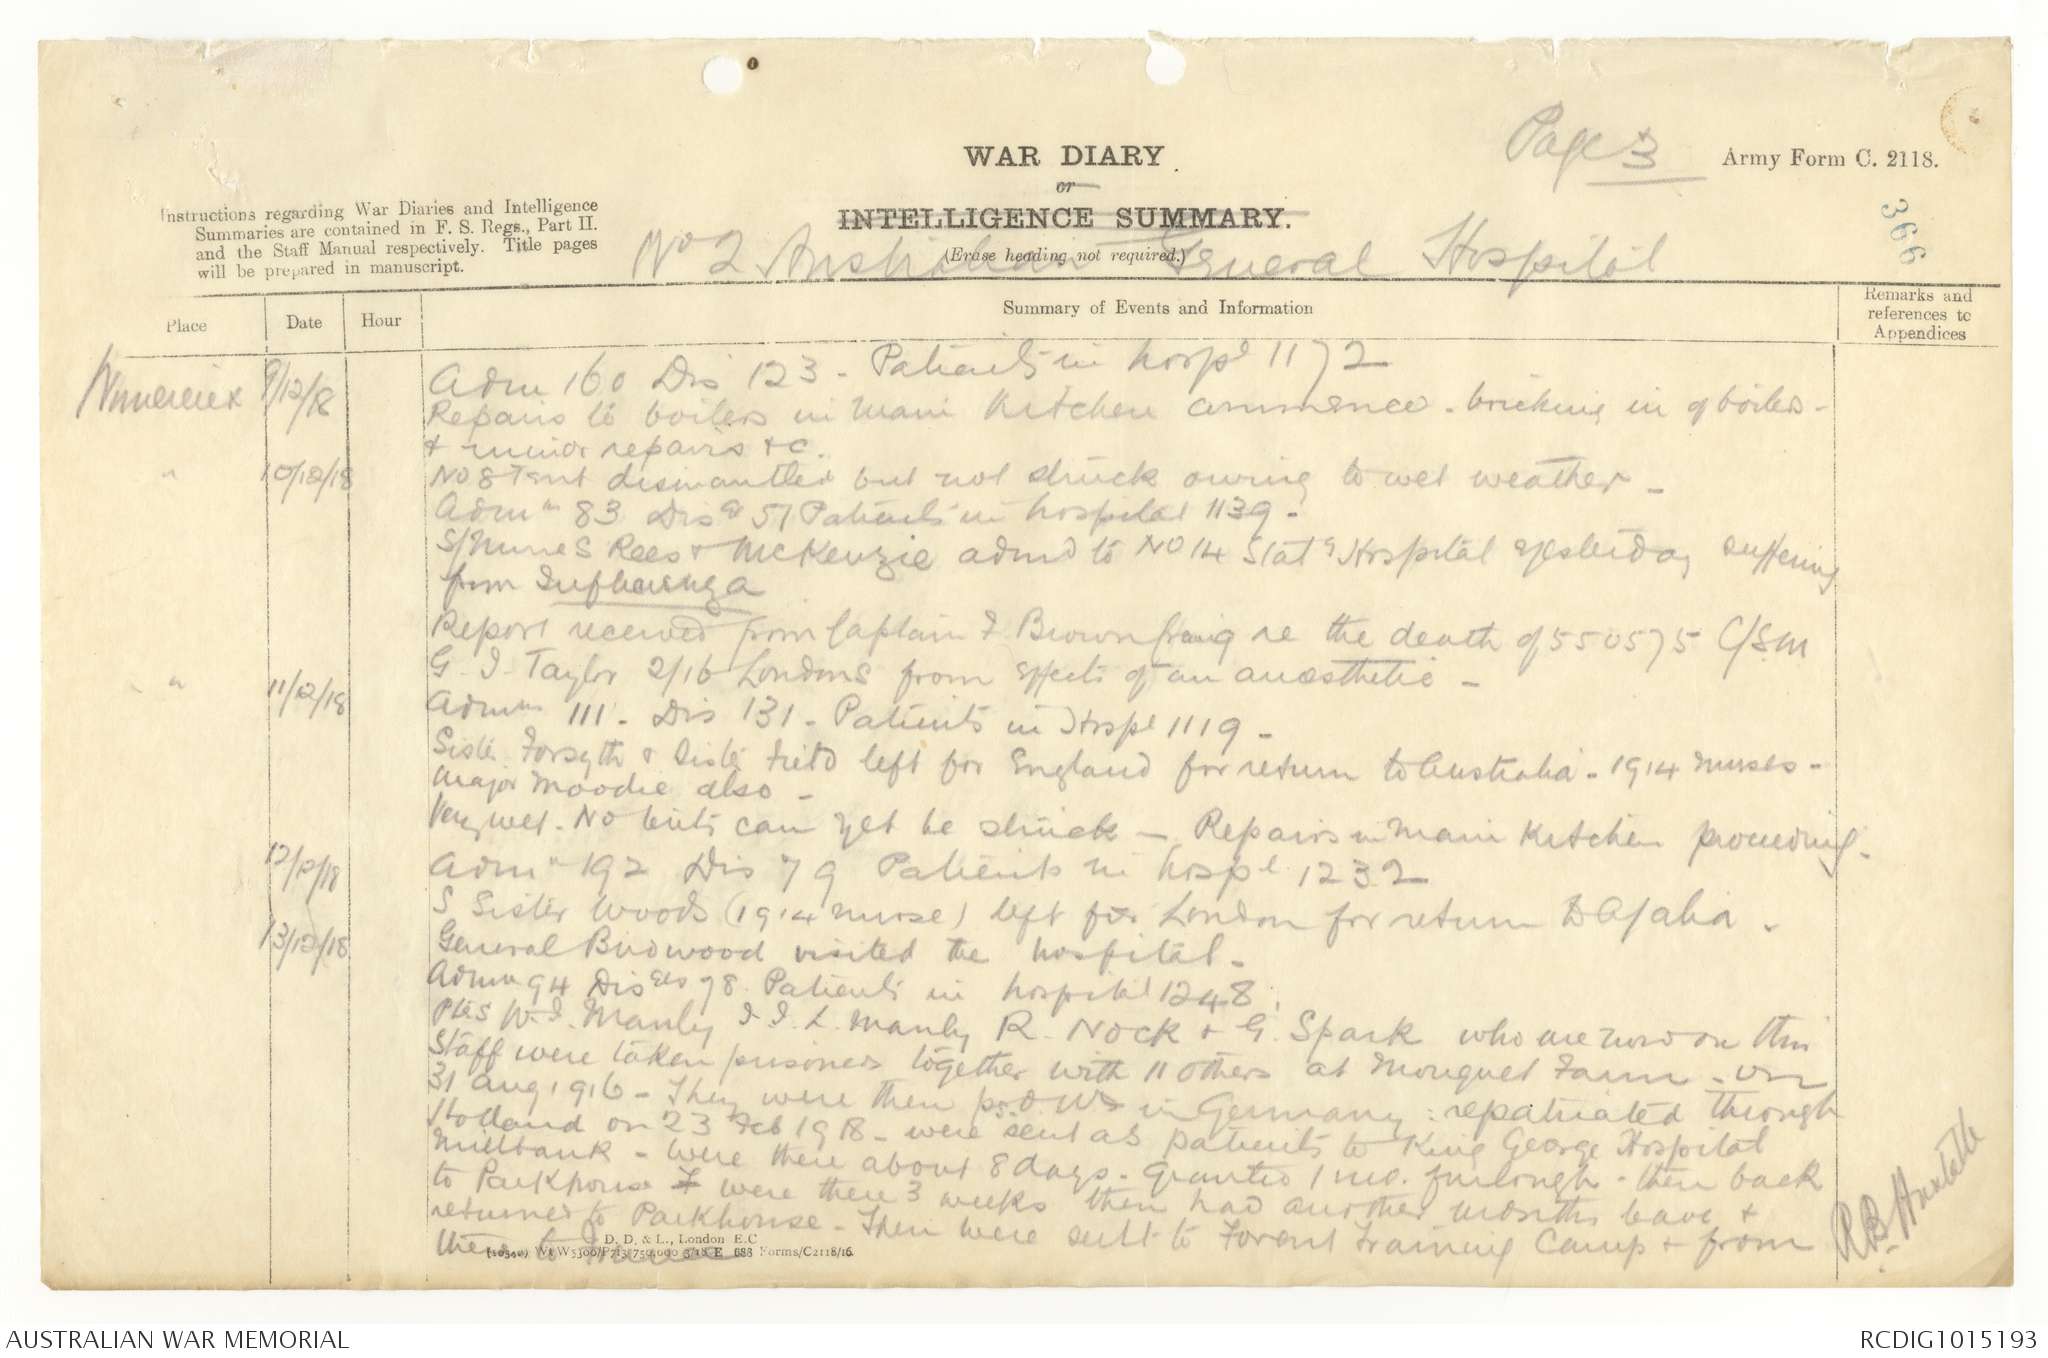 Page 3
WAR DIARY
or
INTELLIGENCE SUMMARY.
(Erase heading not required.)
Army Form C. 2118.
366
Instructions regarding War Diaries and Intelligence
Summaries are contained in F. S. Regs., Part II.
and the Staff Manual respectively. Title pages
will be prepared in manuscript.
No 2 Australian General Hospital
Place Date Hour Summary of Events and Information Remarks and references to Appendices
Wimereux 9/12/18 Adm 160 Dis 123 - Patients in hospl 1172
Repairs to boilers in main kitchen commence - bricking in of boiler -
& minor repairs &c.
" 10/12/18 No 8 Tent dismantled but not struck owing to wet weather -
Admns 83 Disgd 51 Patients in hospital 1139 -
S/Nurses Rees & McKenzie admd to No 14 Staty Hospital yesterday suffering
from Influenza
Report received from Captain F Brown Craig re the death of 550575 C/S.M
G. I. Taylor 2/16 Londons from effects of an anaesthetic -
" 11/12/18 Admns 111 - Dis 131 - Patients in Hospl 1119 -
Sister Forsyth & Sister Field left for England for return to Australia - 1914 nurses -
Major Moodie also -
Very wet - No tents can yet be struck - Repairs in main kitchen proceeding -
12/12/18 Admn 192 Dis 79 Patients in hospl 1232
S Sister Woods (1914 nurse) left for London for return to A/alia -
13/12/18 General Birdwood visited the hospital -
Admn 94 Disges 78 Patients in hospital 1248.
Ptes W. I. Manby I. I. L. Manby R. Nock & G. Spark who are now on this
Staff were taken prisoners together with 11 others at Mouquet Farm - on
31 Aug 1916 - They were then ps.O.W's in Germany: repatriated through
Holland on 23 Feb 1918 - were sent as patients to King George Hospital
Millbank - were there about 8 days - Granted 1 mo. furlough - then back
to Parkhouse & were there 3 weeks then had another months leave &
returned to Parkhouse - Then were sent to Forent Training Camp & from
there to France
D. D. & L., London E.C
Forms/C2118/16.
R B Huxtable
AUSTRALIAN WAR MEMORIAL
RCDIG1015193